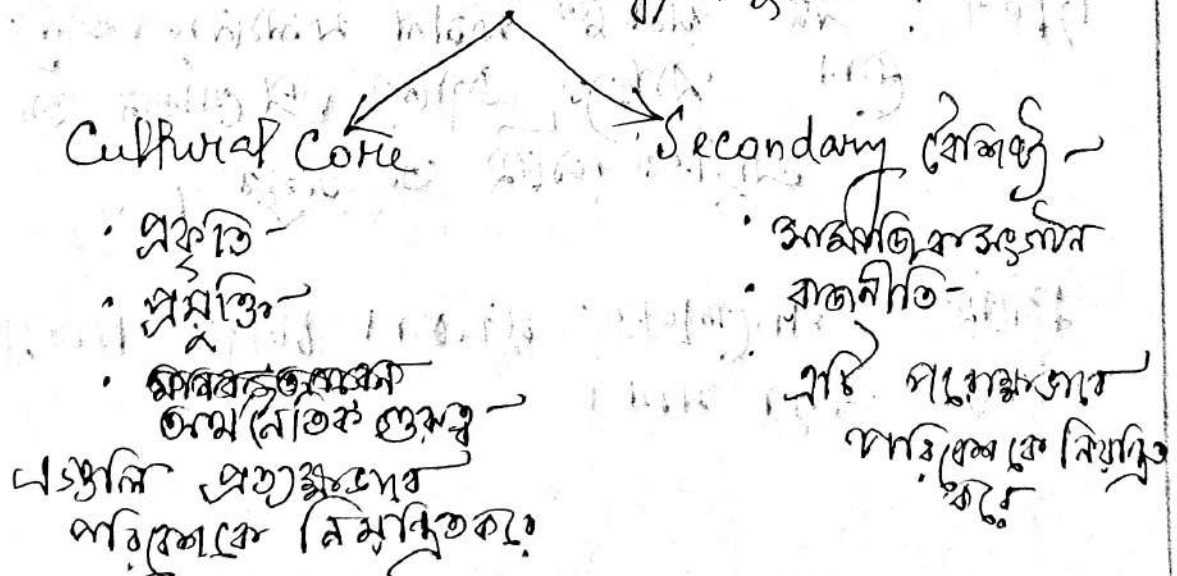 Cultural Core
• প্রকৃতি
• প্রযুক্তি
• অর্থনৈতিক গুরুত্ব
এগুলি প্রত্যক্ষভাবে
পরিবেশকে নিয়ন্ত্রিত করে
Secondary বৈশিষ্ট্য
• সামাজিক সংগঠন
• রাজনীতি
এটি পরোক্ষভাবে
পরিবেশ কে নিয়ন্ত্রিত
করে